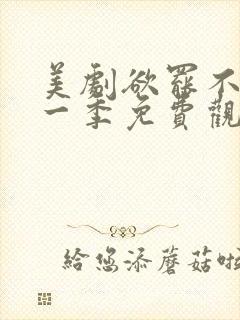 美劇欲罷不
一季免費觀
給您添蘑菇啦